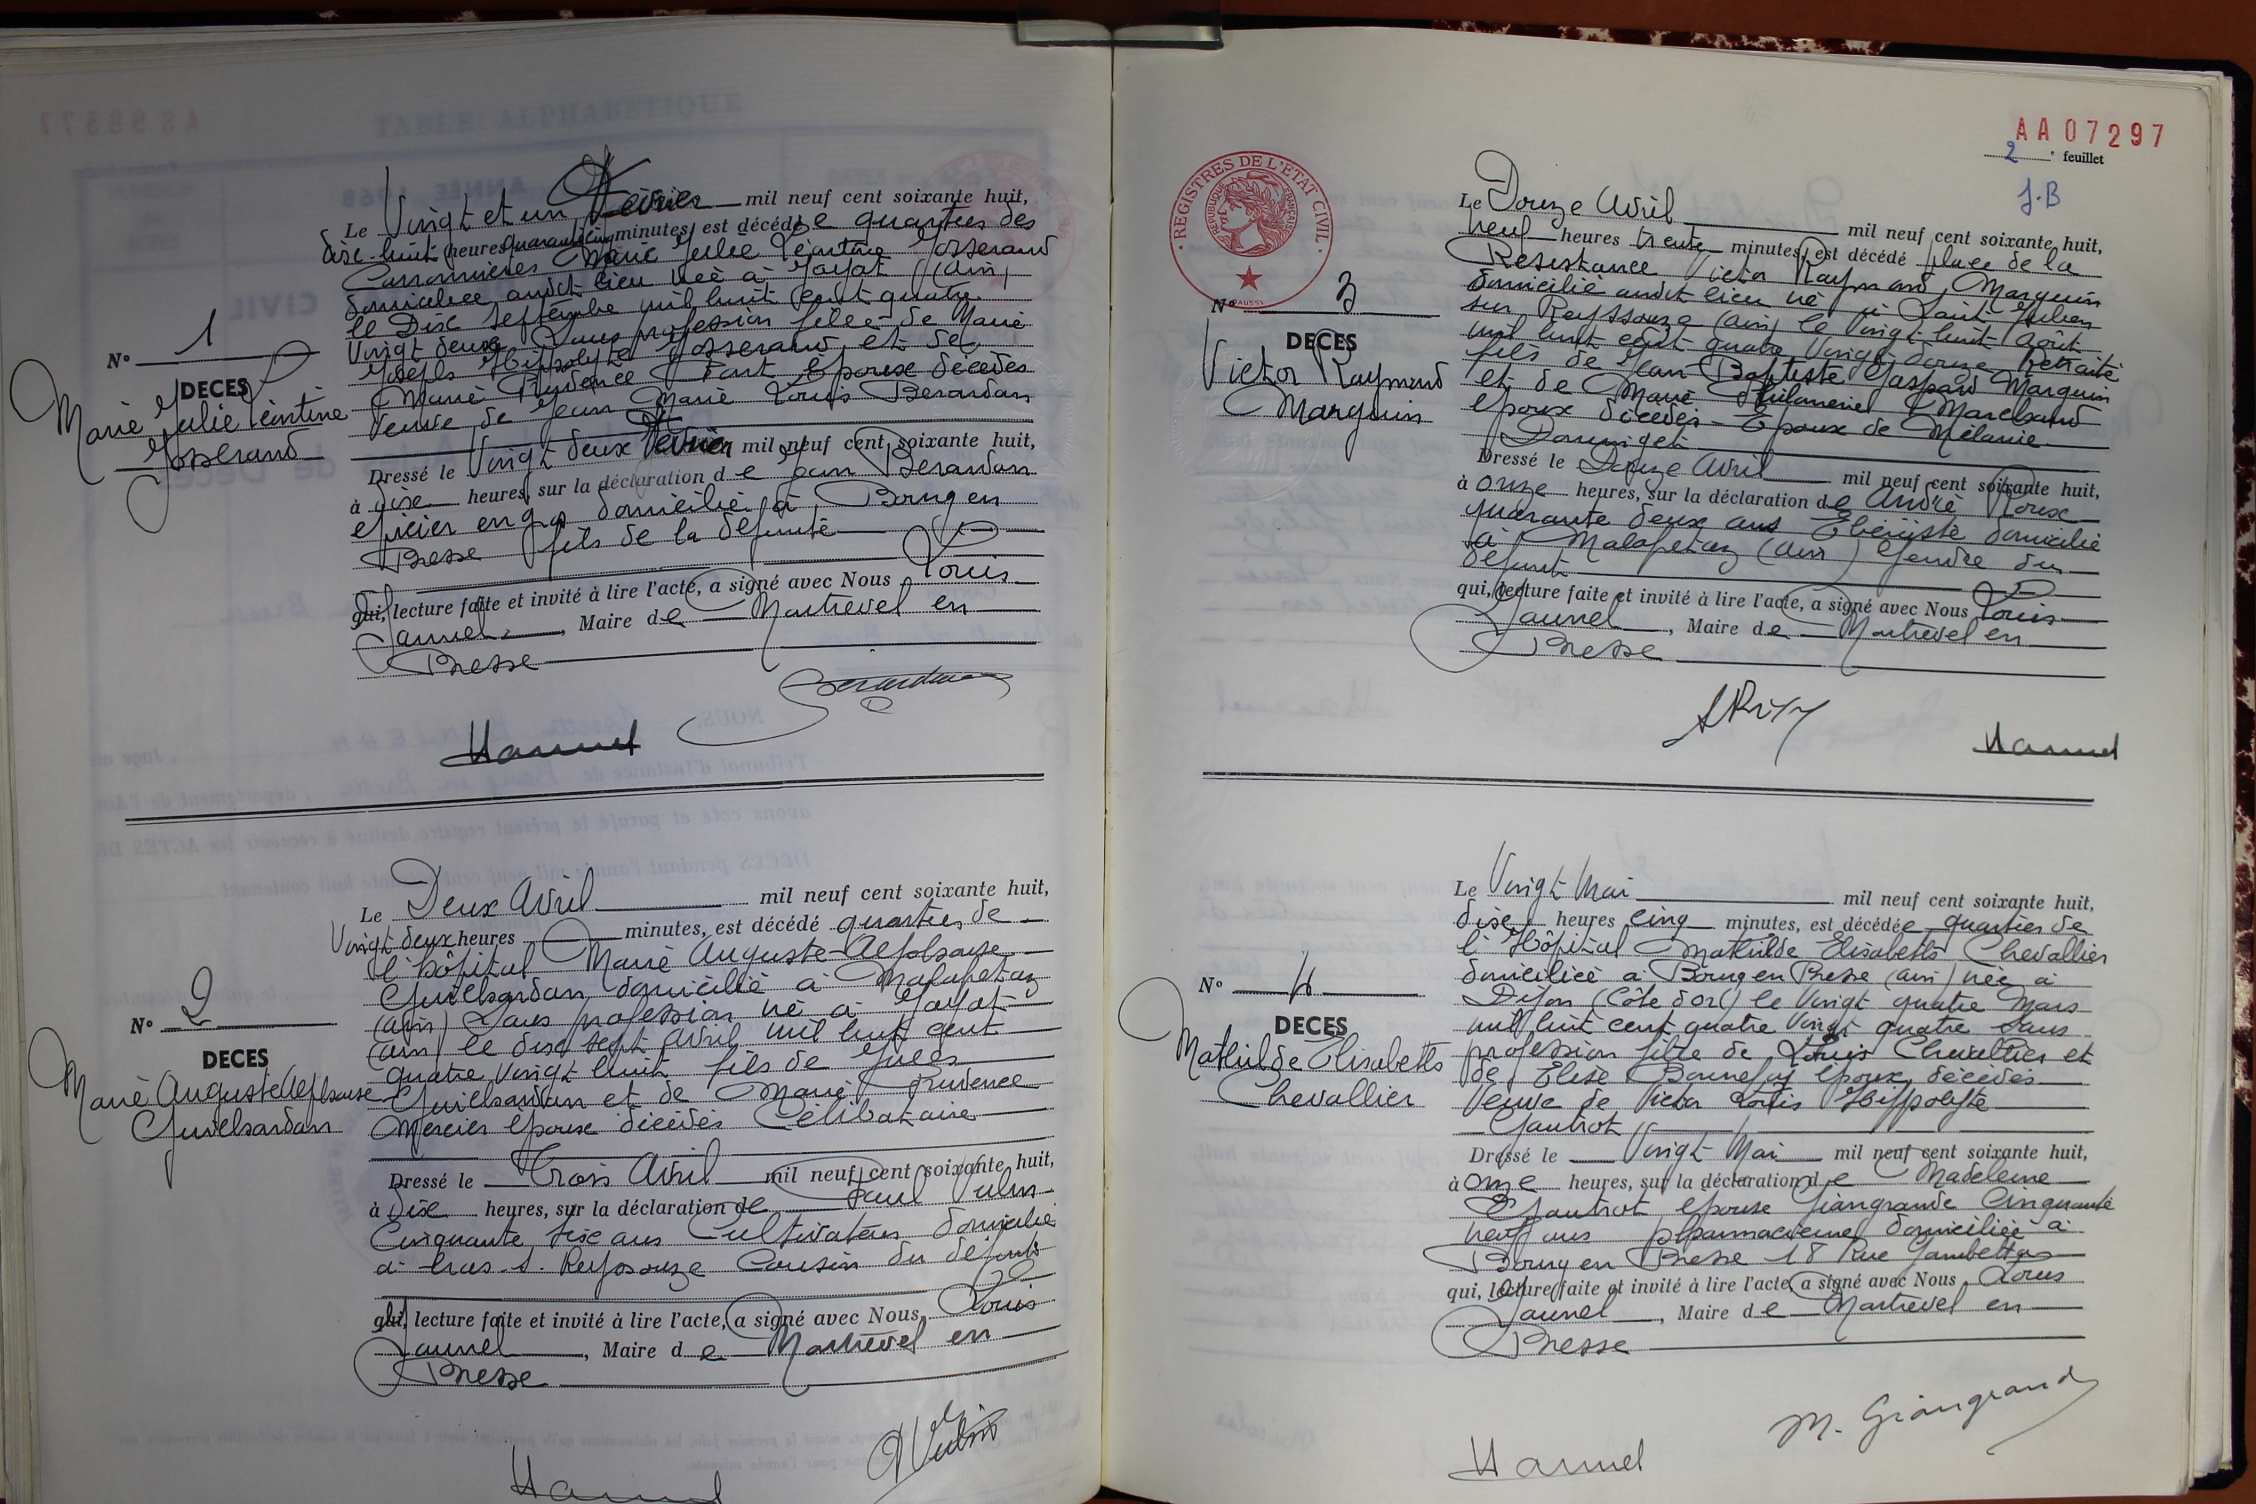 Le Vingt et un Février mil neuf cent soixante huit,
dix-huit heures quarante cinq minutes, est décédée quartier des
Carronnières Marie Julie Léontine Josserand
domiciliée audit lieu née à Jayat (Ain)
le Dix Septembre mil huit cent quatre
Vingt deux Sans profession fille de Marie
Joseph Hippolyte Josserand et de
Marie Prudence Epoux décédés
Veuve de Jean Marie Louis Berardan
N° 1
DECES
Marie Julie Léontine
Josserand
Dressé le Vingt deux Février mil neuf cent soixante huit,
à dix heures, sur la déclaration de Jean Berardan
épicier en gros domicilié à Bourg en
Bresse fils de la défunte
qui, lecture faite et invité à lire l'acte, a signé avec Nous Louis
Jaunel, Maire de Montrevel en
Bresse
Le Deux Avril mil neuf cent soixante huit,
Vingt deux heures minutes, est décédé quartier de
l'hôpital Marie Auguste Alphonse
Guichardan domicilié à Malafretaz
(Ain) Sans profession né à Jayat
(Ain) le dix sept Avril mil huit cent
quatre vingt huit fils de Jules
Guichardan et de Marie Prudence
Mercier époux décédés Célibataire
N° 2
DECES
Marie Auguste Alphonse
Guichardan
Dressé le Trois Avril mil neuf cent soixante huit,
à dix heures, sur la déclaration de Paul Vulin
Cinquante six ans Cultivateur domicilié
à Cras-s-Reyssouze Cousin du défunt
qui, lecture faite et invité à lire l'acte, a signé avec Nous, Louis
Jaunel, Maire de Montrevel en
Bresse
AA07297
2 feuillet
J.B
REGISTRES DE L'ÉTAT CIVIL
RÉPUBLIQUE FRANÇAISE
Le Douze Avril mil neuf cent soixante huit,
neuf heures trente minutes, est décédé place de la
Résistance Victor Raymond Marguin
domicilié audit lieu né à Saint Julien
sur Reyssouze (Ain) le Vingt huit Août
mil huit cent quatre Vingt douze Retraité
fils de Jean Baptiste Gaspard Marguin
et de Marie Philomène Marchand
époux décédés - Epoux de Mélanie
Donguiget
N° 3
DECES
Victor Raymond
Marguin
Dressé le Douze Avril mil neuf cent soixante huit,
à onze heures, sur la déclaration de André Roux
quarante deux ans Ebéniste domicilié
à Malafretaz (Ain) gendre du
défunt
qui, lecture faite et invité à lire l'acte, a signé avec Nous Louis
Jaunel, Maire de Montrevel en
Bresse
Le Vingt Mai mil neuf cent soixante huit,
dix heures cinq minutes, est décédée quartier de
l'Hôpital Mathilde Elisabeth Chevallier
domiciliée à Bourg en Bresse (Ain) née à
Dijon (Côte d'or) le Vingt quatre Mars
mil huit cent quatre Vingt quatre Sans
profession fille de Louis Chevallier et
de Elise Bonnefoy époux décédés
Veuve de Victor Louis Hippolyte
Gautrot
N° 4
DECES
Mathilde Elisabeth
Chevallier
Dressé le Vingt Mai mil neuf cent soixante huit,
à onze heures, sur la déclaration de Madeleine
Gautrot épouse Giangrande Cinquante
neuf ans pharmacienne domiciliée à
Bourg en Bresse 18 Rue Gambetta
qui, lecture faite et invité à lire l'acte, a signé avec Nous, Louis
Jaunel, Maire de Montrevel en
Bresse
M. Giangrand